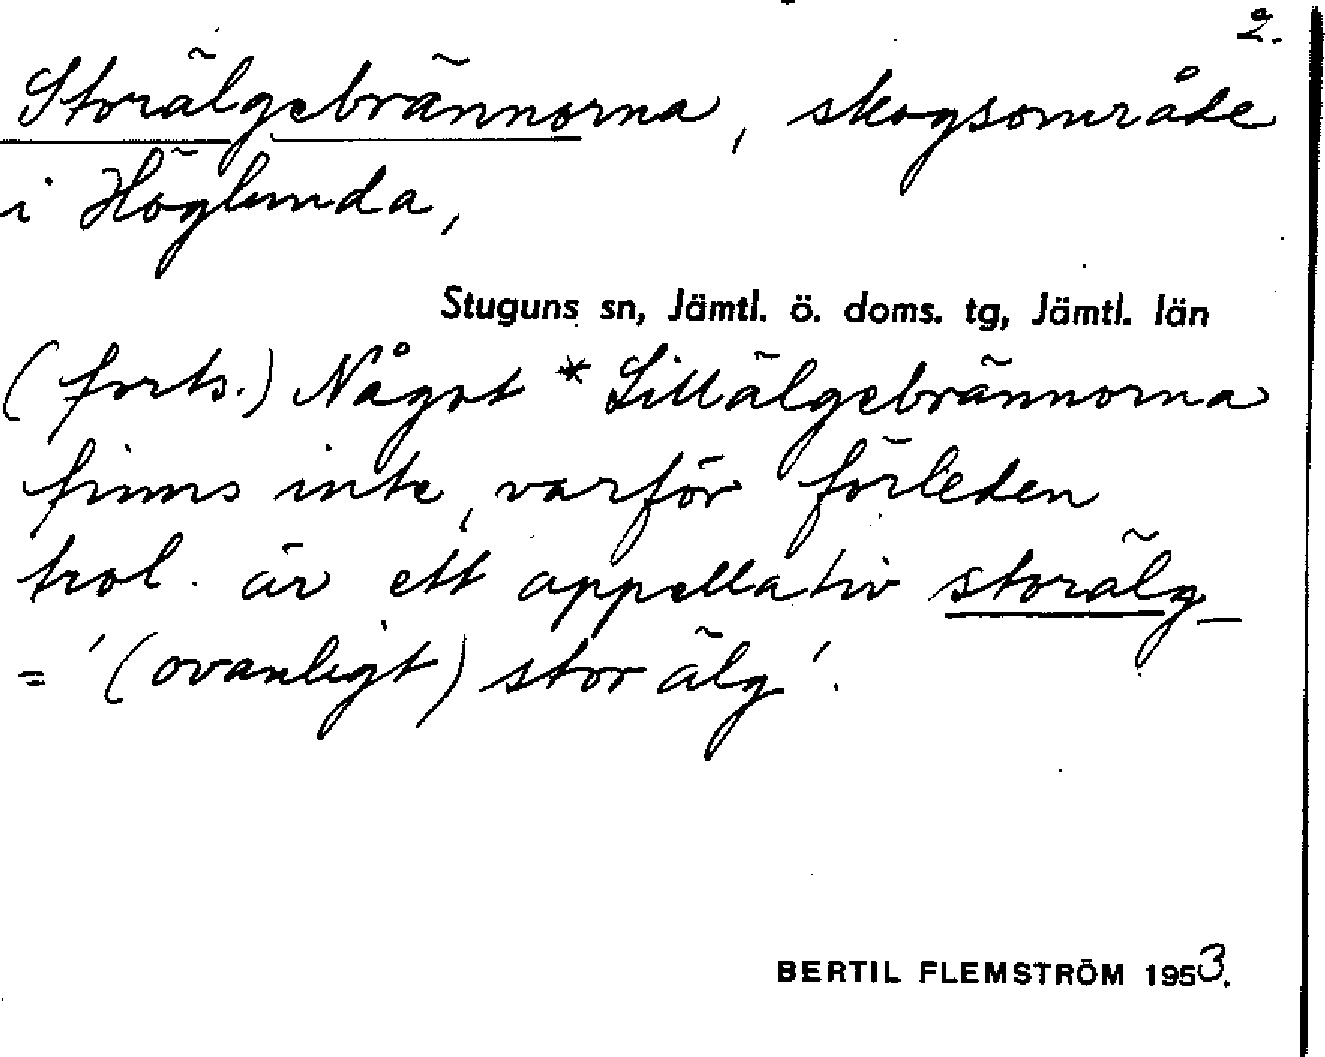 2.
Storälgebrännorna, skogsområde
i Höglunda,
Stuguns sn, Jämtl. ö. doms. tg, Jämtl. län
(forts.) Något *Lillälgebrännorna
finns inte, varför förleden
trol. är ett appellativ storälg-
= '(ovanligt) stor älg'.
BERTIL FLEMSTRÖM 1953.